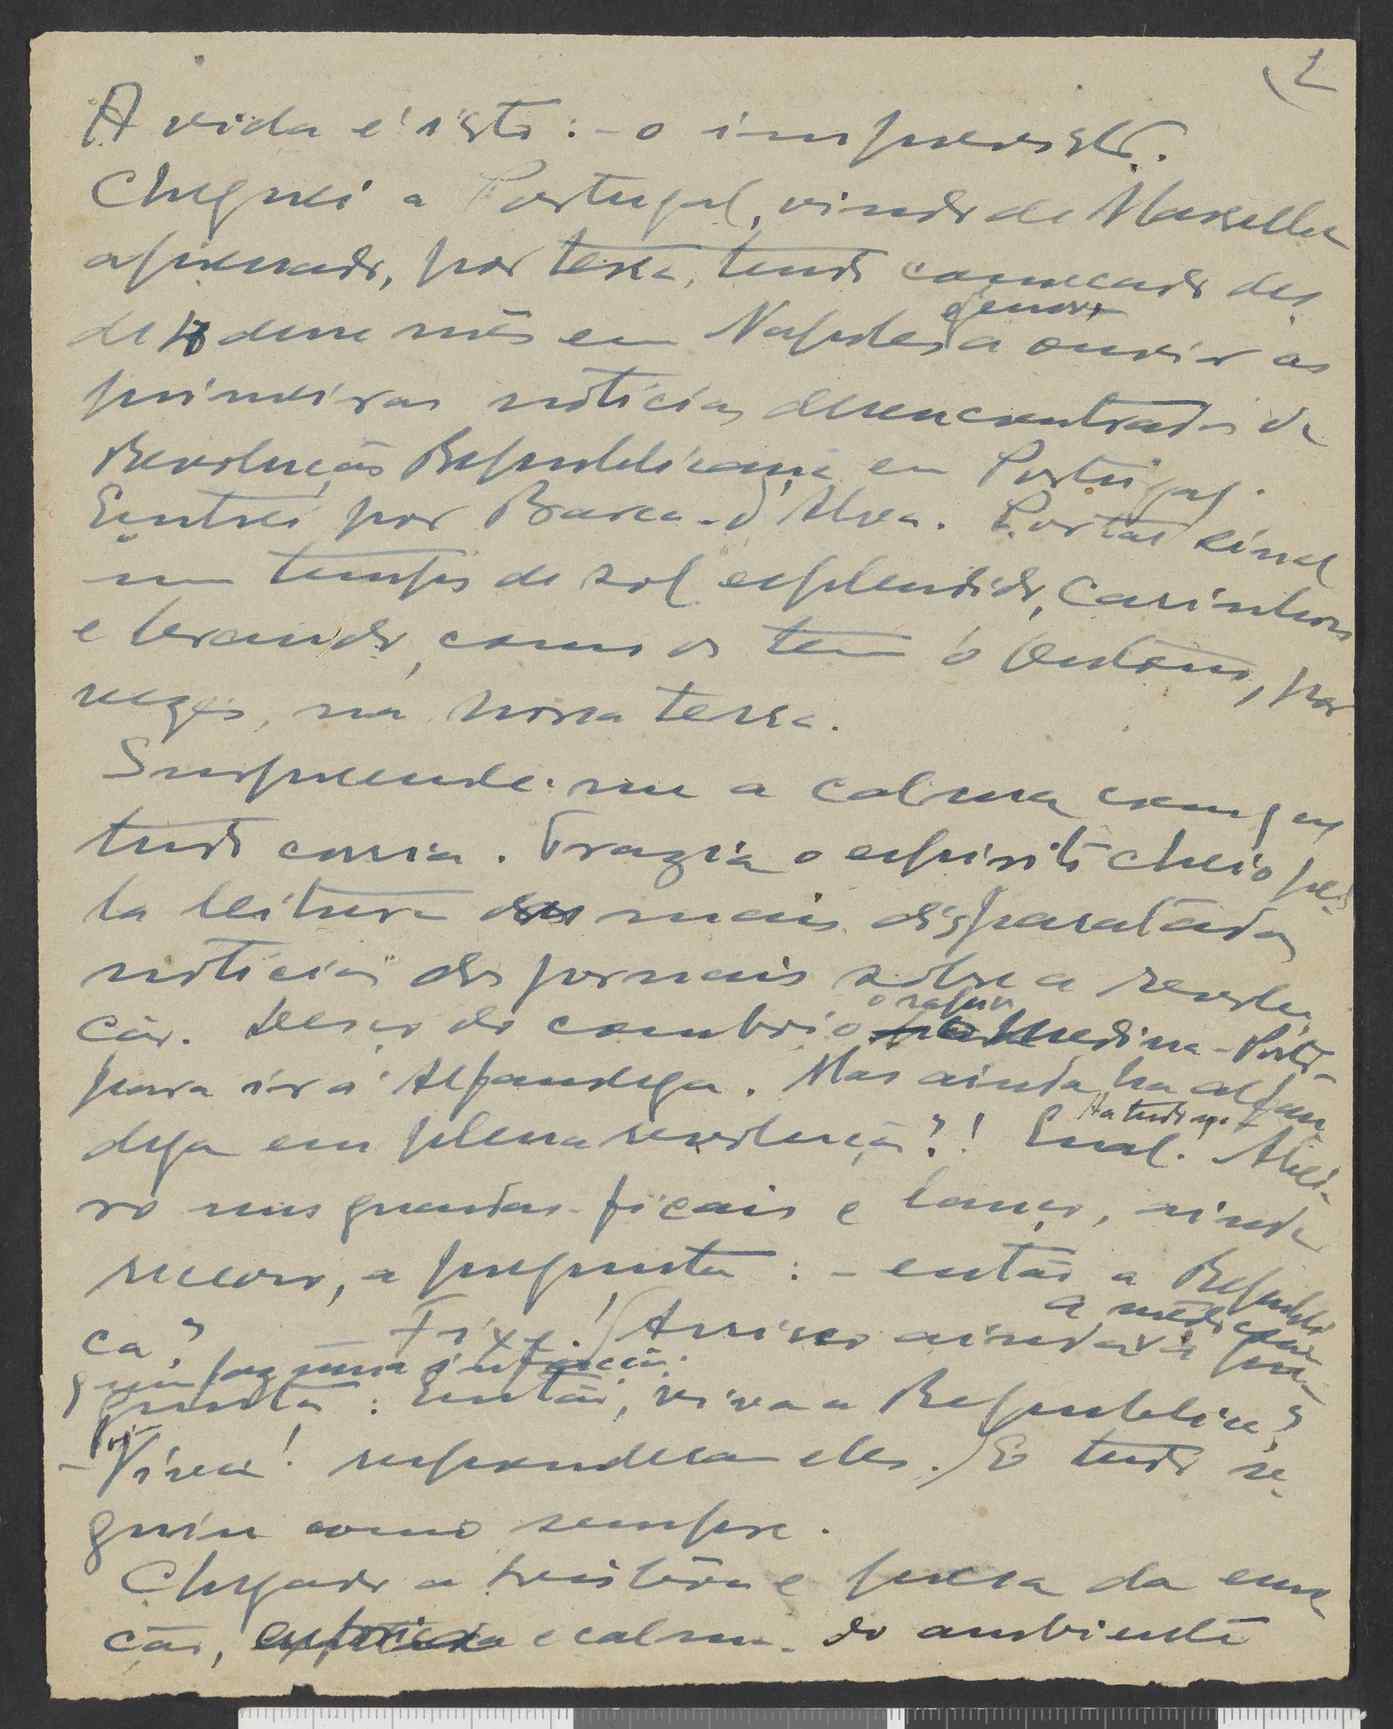 1
A vida é isto: - o imprevisto.
Cheguei a Portugal, vindo de Marselha
apressado, por terra, tendo começado des-
de desse mês em Napoles Genova a ouvir as
primeiras noticias desencontradas da
Revolução Republicana em Portugal.
Entrei por Barca-d'Alva. Portas
um tempo de sol esplendido, carinhoso
e brando, como os tem o Outono, por
vezes, na nossa terra.
Surpreende-me a calma com que
tudo corria. Trazia o espirito cheio pe-
la leitura das mais disparatadas
noticias dos jornais sobre a revolu-
ção. Desço do comboio Medina-Porto
para ir á Alfandega. Mas ainda ha alfan-
dega em plena revolução?! Ha tudo
ro uns guardas-fiscais e lanço, ainda
receoso, a pergunta: - então a Republi-
ca? - Fixe! Arrisco ainda a medo
pergunta: Então, viva a Republica?
- Viva! responderam eles. E tudo se-
guiu como sempre.
Chegado a e da emo-
ção, e calma do ambiente